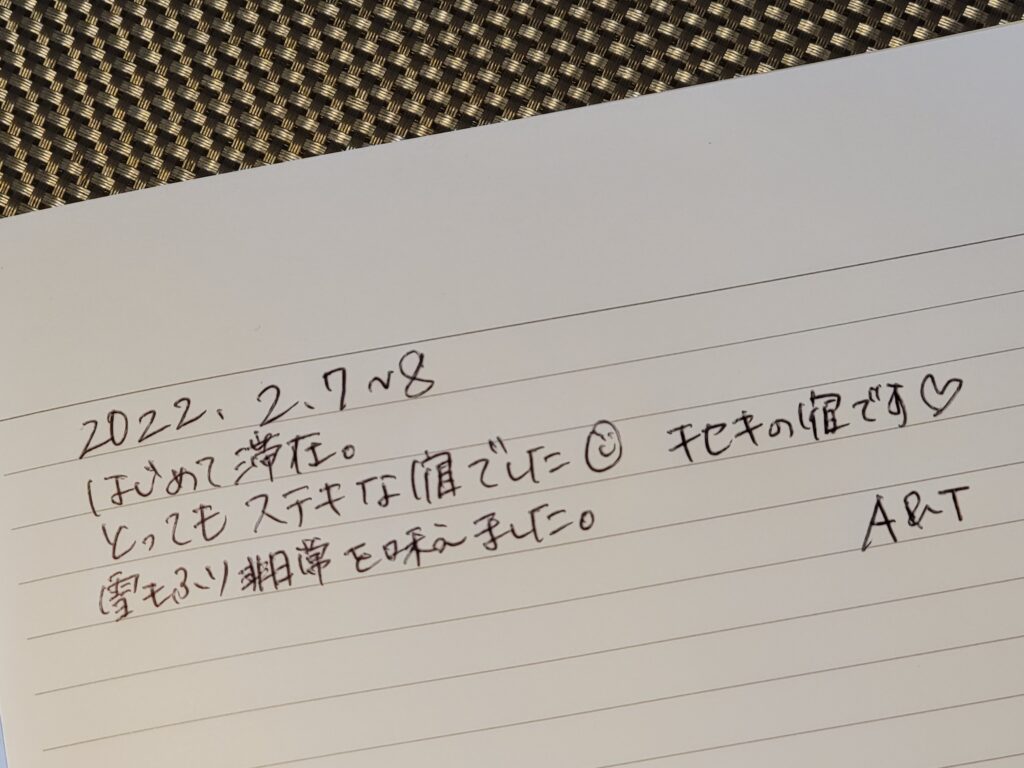 2022、2、7~8
はじめて滞在。
とってもステキな宿でした☺ キセキの宿です♡
雪もふり非日常を味えました。
A&T